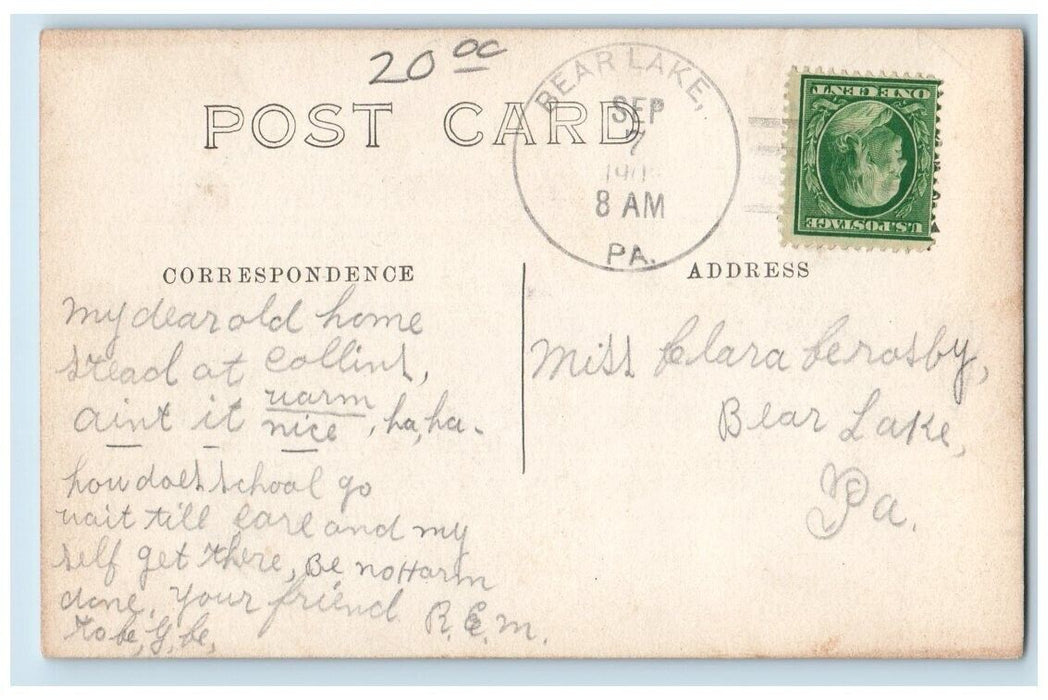 20 00
POST CARD
BEAR LAKE,
SEP
7
8 AM
PA.
U.S. POSTAGE
ONE CENT
CORRESPONDENCE
ADDRESS
my dear old home
stead at Collins,
aint it warm nice, ha, ha.
how does school go
wait till Earl and my
self get there, Be no Harm
done. Your friend R.E.M.
Miss Clara Crosby,
Bear Lake,
Pa.